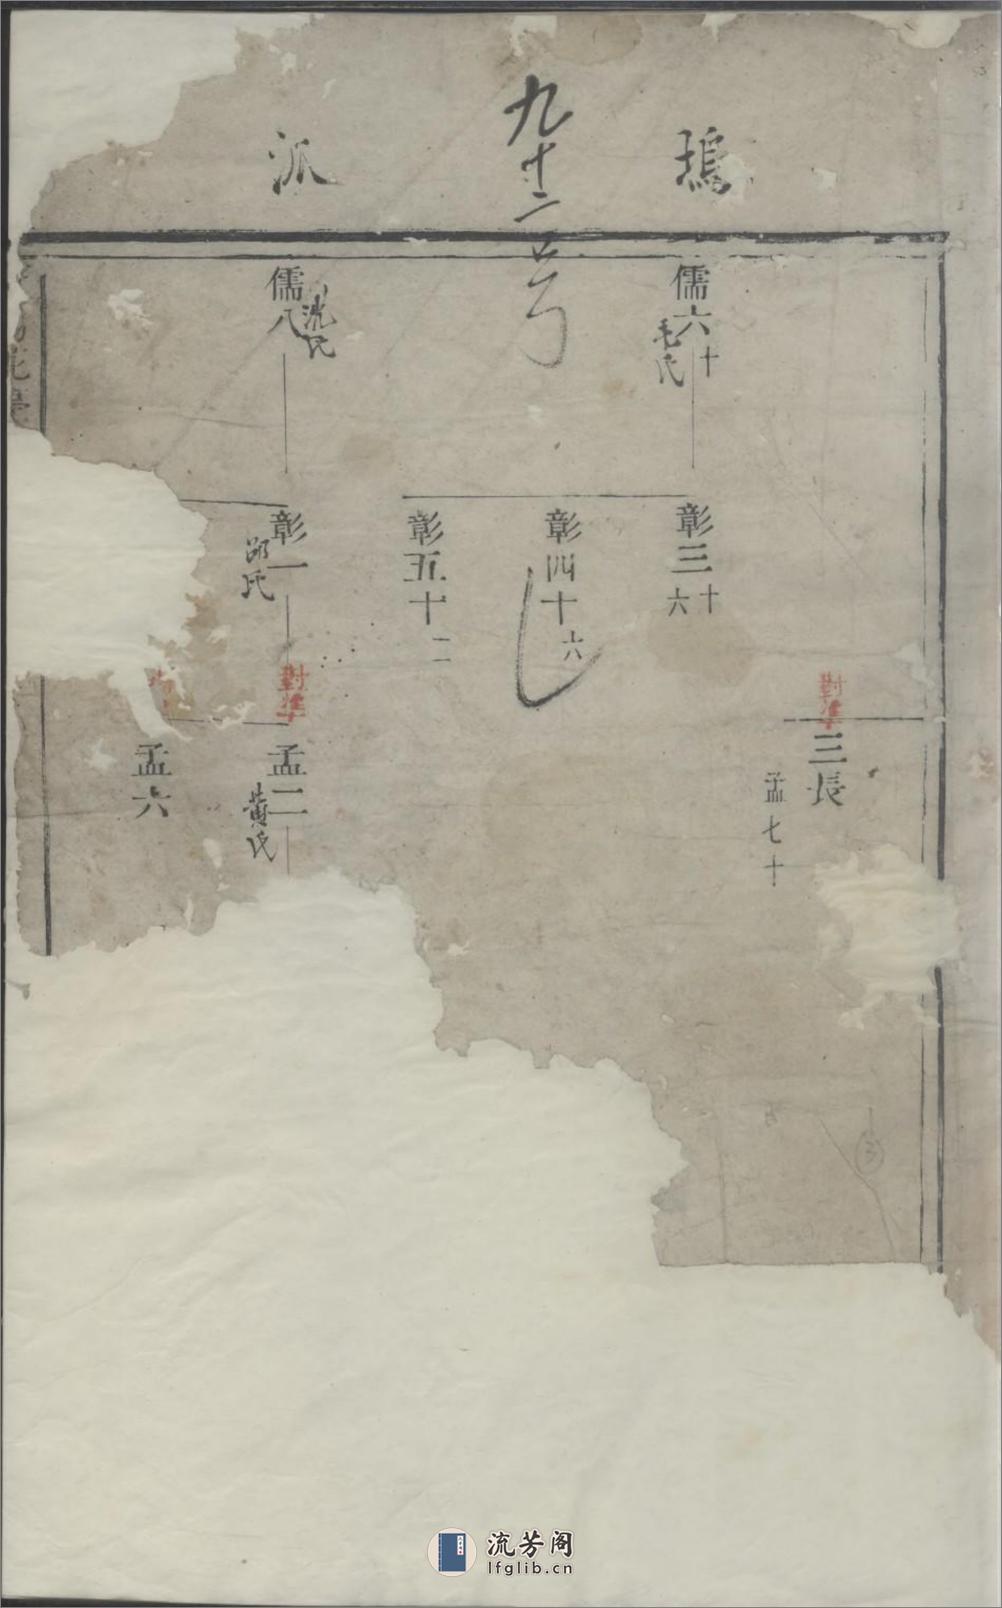 瑦
九十二号
派
儒六十
毛氏
儒八
沈氏
彰三十六
彰四十六
彰五十二
彰一
邵氏
對準
三長
孟七十
對準
孟二
黄氏
孟六
流芳阁
lfglib.cn